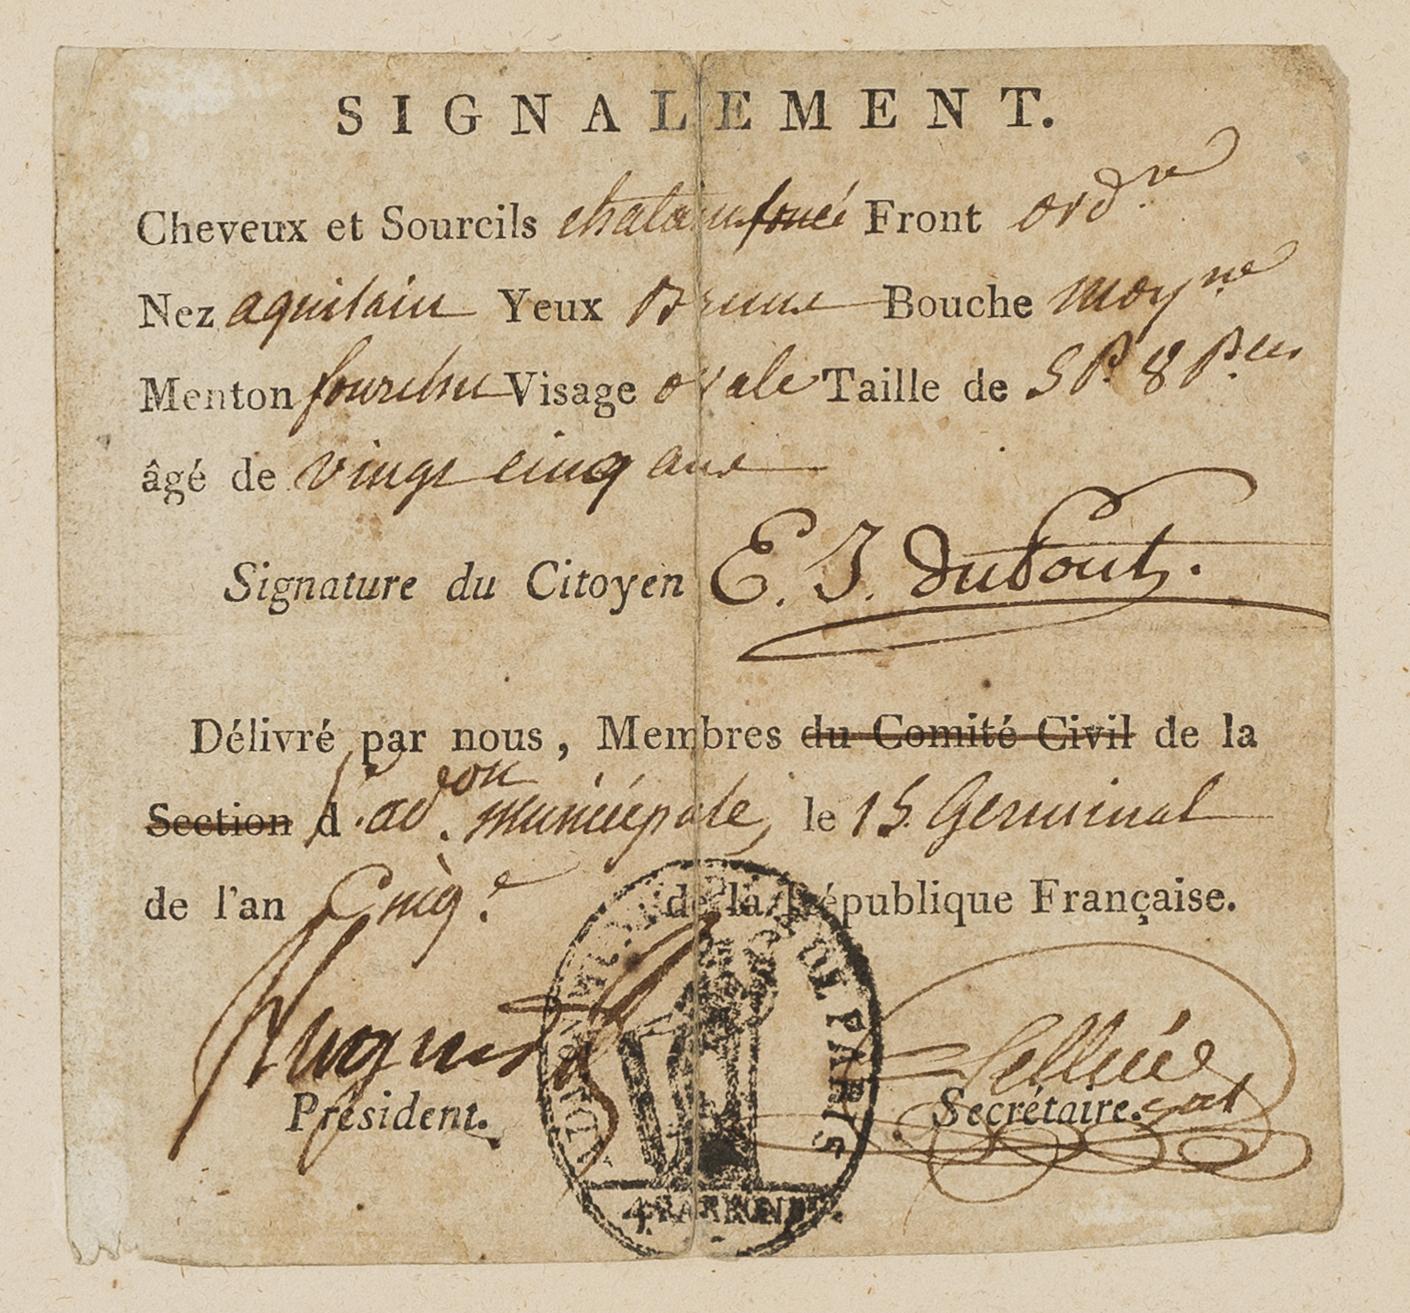 SIGNALEMENT.
Cheveux et Sourcils chatain foncé Front ordre
Nez aquilain Yeux Bruns Bouche moyne
Menton fourchu Visage ovale Taille de 5 Pds. 8 Pces
âgé de vingt cinq ans
Signature du Citoyen E. I. duPont.
Délivré par nous, Membres du Comité Civil de la
Section d l'adon. municipale, le 15 Germinal
de l'an Cinqe. de la République Française.
Président. Secrétaire.
DE PARIS
4e ARROND.